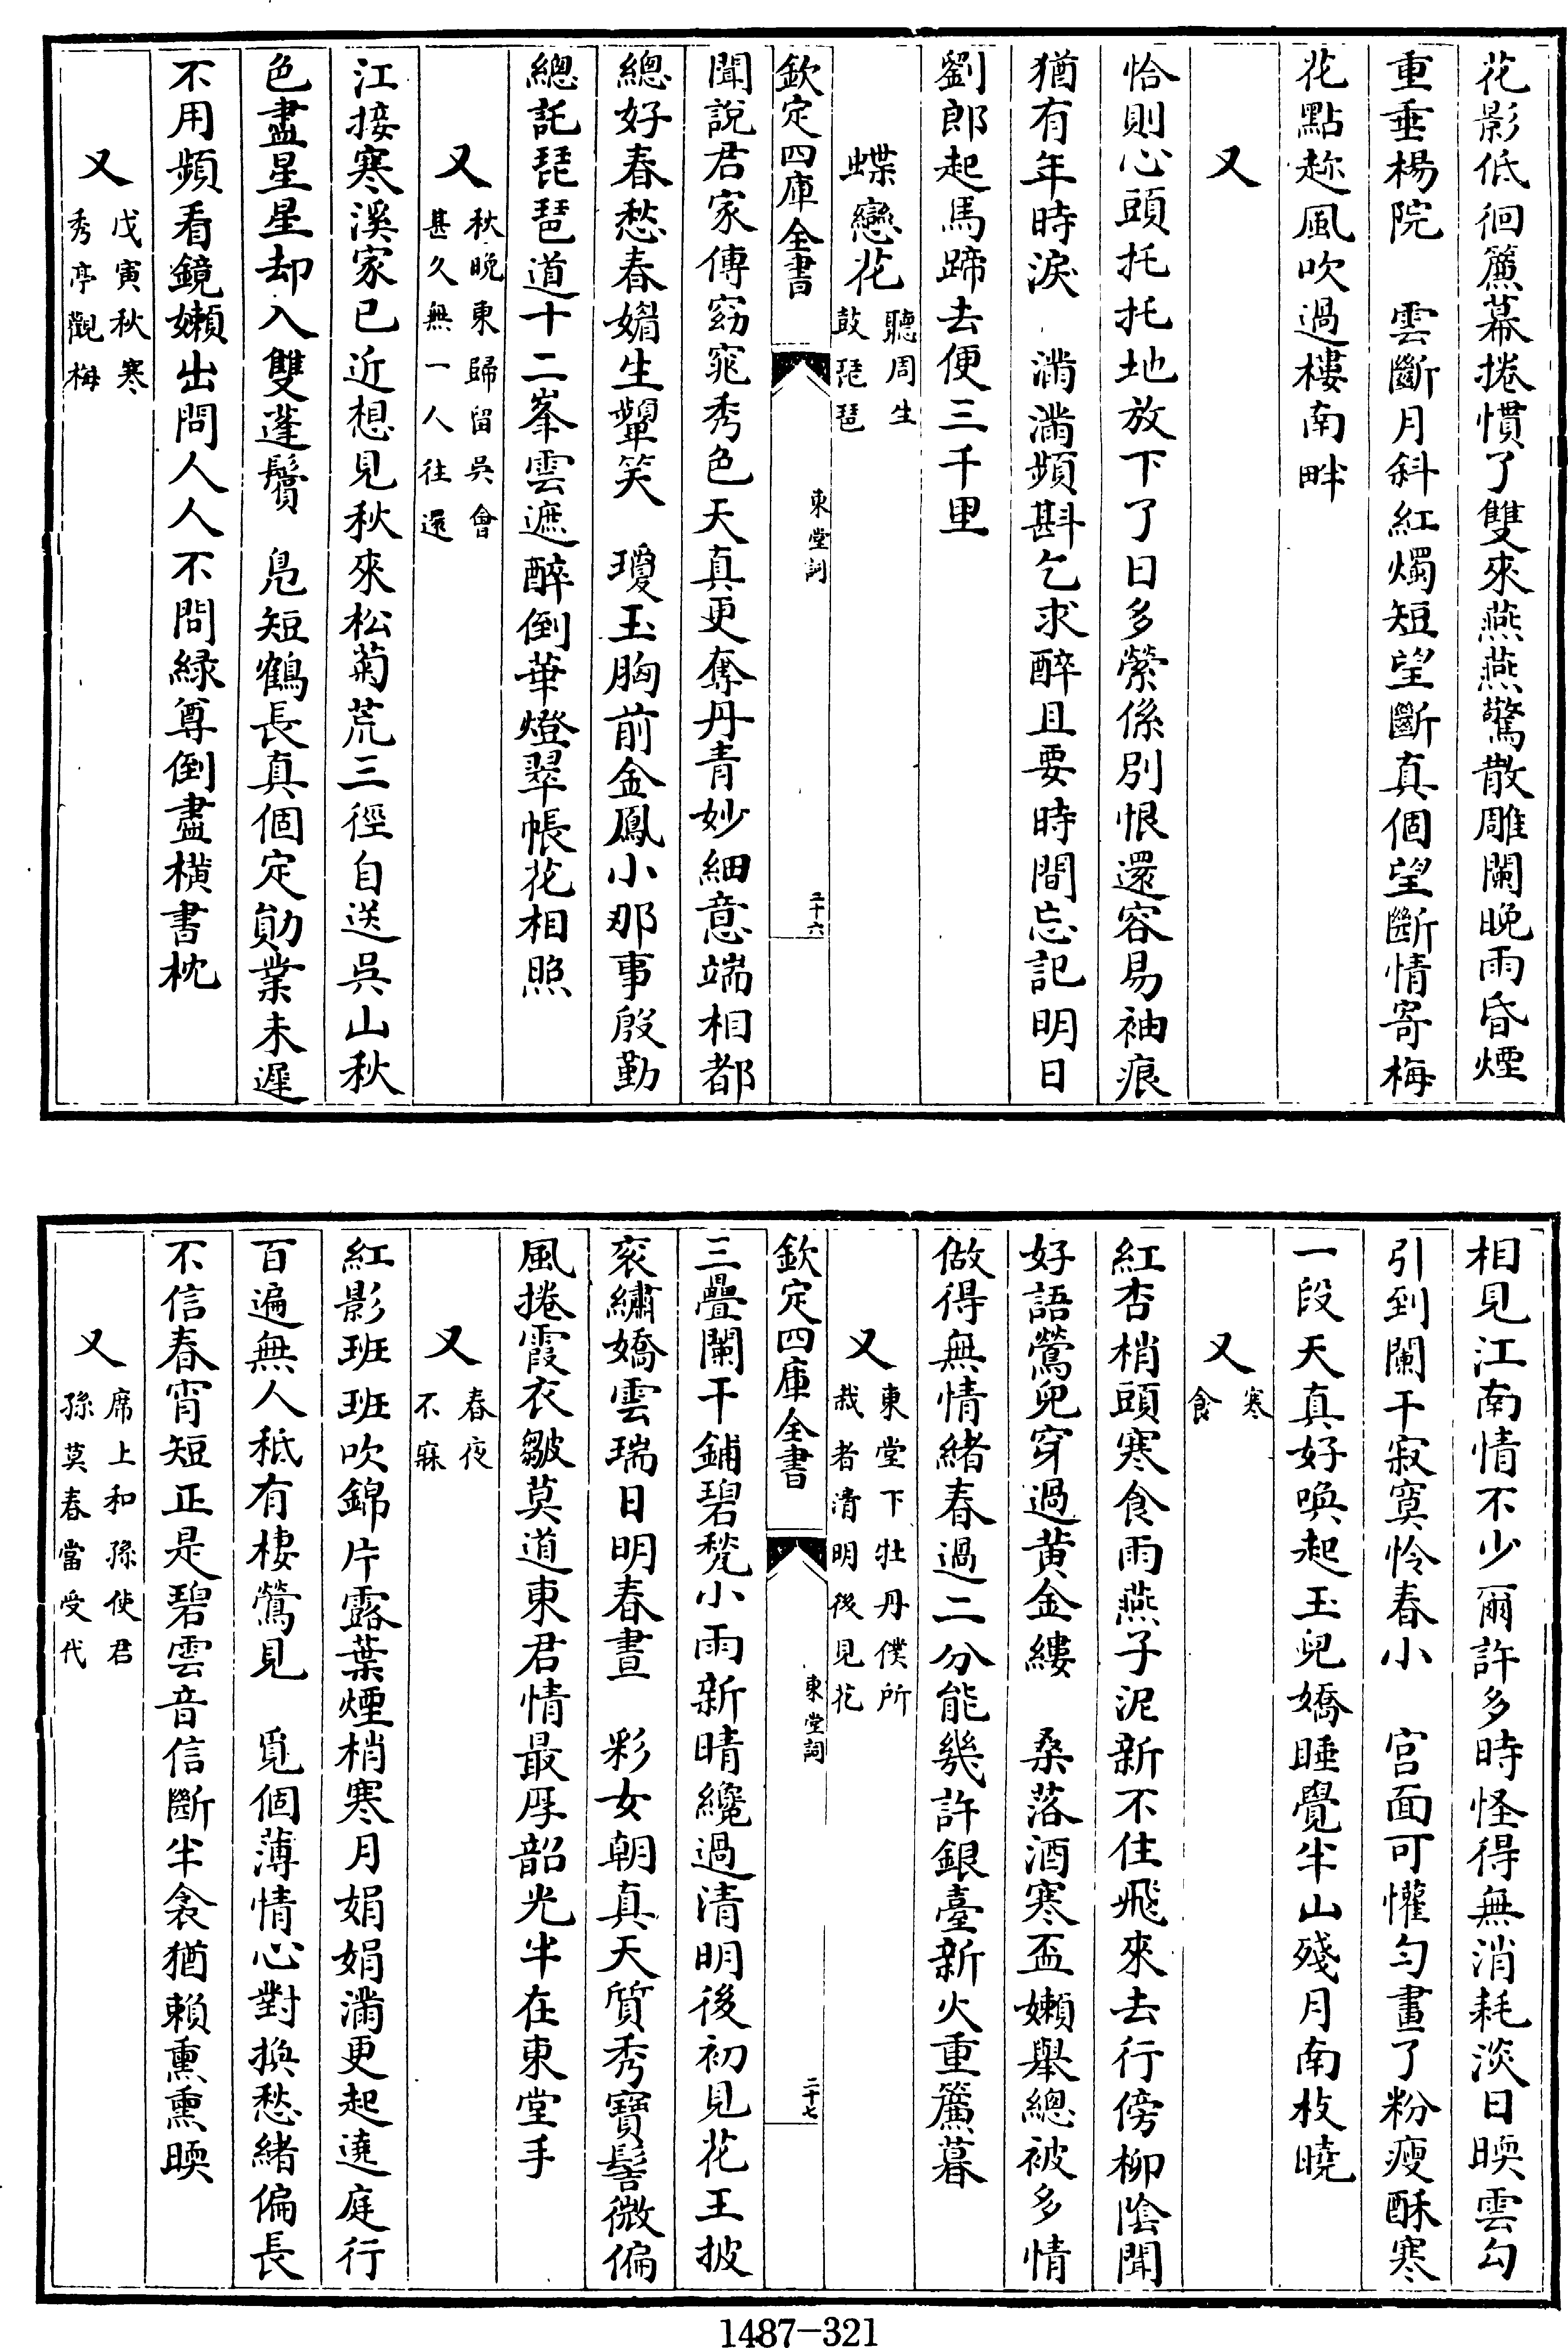 花影低徊簾幕捲慣了雙來燕燕驚散雕闌晚雨昏煙
重垂楊院　雲斷月斜紅燭短望斷真個望斷情寄梅
花點趂風吹過樓南畔
又
恰則心頭托托地放下了日多縈係別恨還容易袖痕
猶有年時淚　滿滿頻斟乞求醉且要時間忘記明日
劉郎起馬蹄去便三千里
蝶戀花　聽周生鼓琵琶
欽定四庫全書　東堂詞　二十六
聞說君家傳窈窕秀色天真更奪丹青妙細意端相都
總好春愁春媚生顰笑　瓊玉胸前金鳳小那事殷勤
總託琵琶道十二峯雲遮醉倒華燈翠帳花相照
又　秋晚東歸留吳會甚久無一人往還
江接寒溪家已近想見秋來松菊荒三徑自送吳山秋
色盡星星却入雙蓬鬢　鳧短鶴長真個定勛業未遲
不用頻看鏡嬾出問人人不問綠尊倒盡橫書枕
又　戊寅秋寒秀亭觀梅
相見江南情不少爾許多時怪得無消耗淡日暎雲勾
引到闌干寂寞怜春小　宮面可懽勻畫了粉瘦酥寒
一段天真好喚起玉兒嬌睡覺半山殘月南枝曉
又　寒食
紅杏梢頭寒食雨燕子泥新不住飛來去行傍柳陰聞
好語鶯兒穿過黃金縷　桑落酒寒盃嬾舉總被多情
做得無情緒春過二分能幾許銀臺新火重簾暮
又　東堂下牡丹僕所栽者清明後見花
欽定四庫全書　東堂詞　二十七
三疊闌干鋪碧甃小雨新晴纔過清明後初見花王披
衮繡嬌雲瑞日明春晝　彩女朝真天質秀寶髻微偏
風捲霞衣皺莫道東君情最厚韶光半在東堂手
又　春夜不寐
紅影班班吹錦片露葉煙梢寒月娟娟滿更起遶庭行
百遍無人秪有棲鶯見　覓個薄情心對換愁緒偏長
不信春宵短正是碧雲音信斷半衾猶賴熏熏暎
又　席上和孫使君孫莫春當受代
1487-321